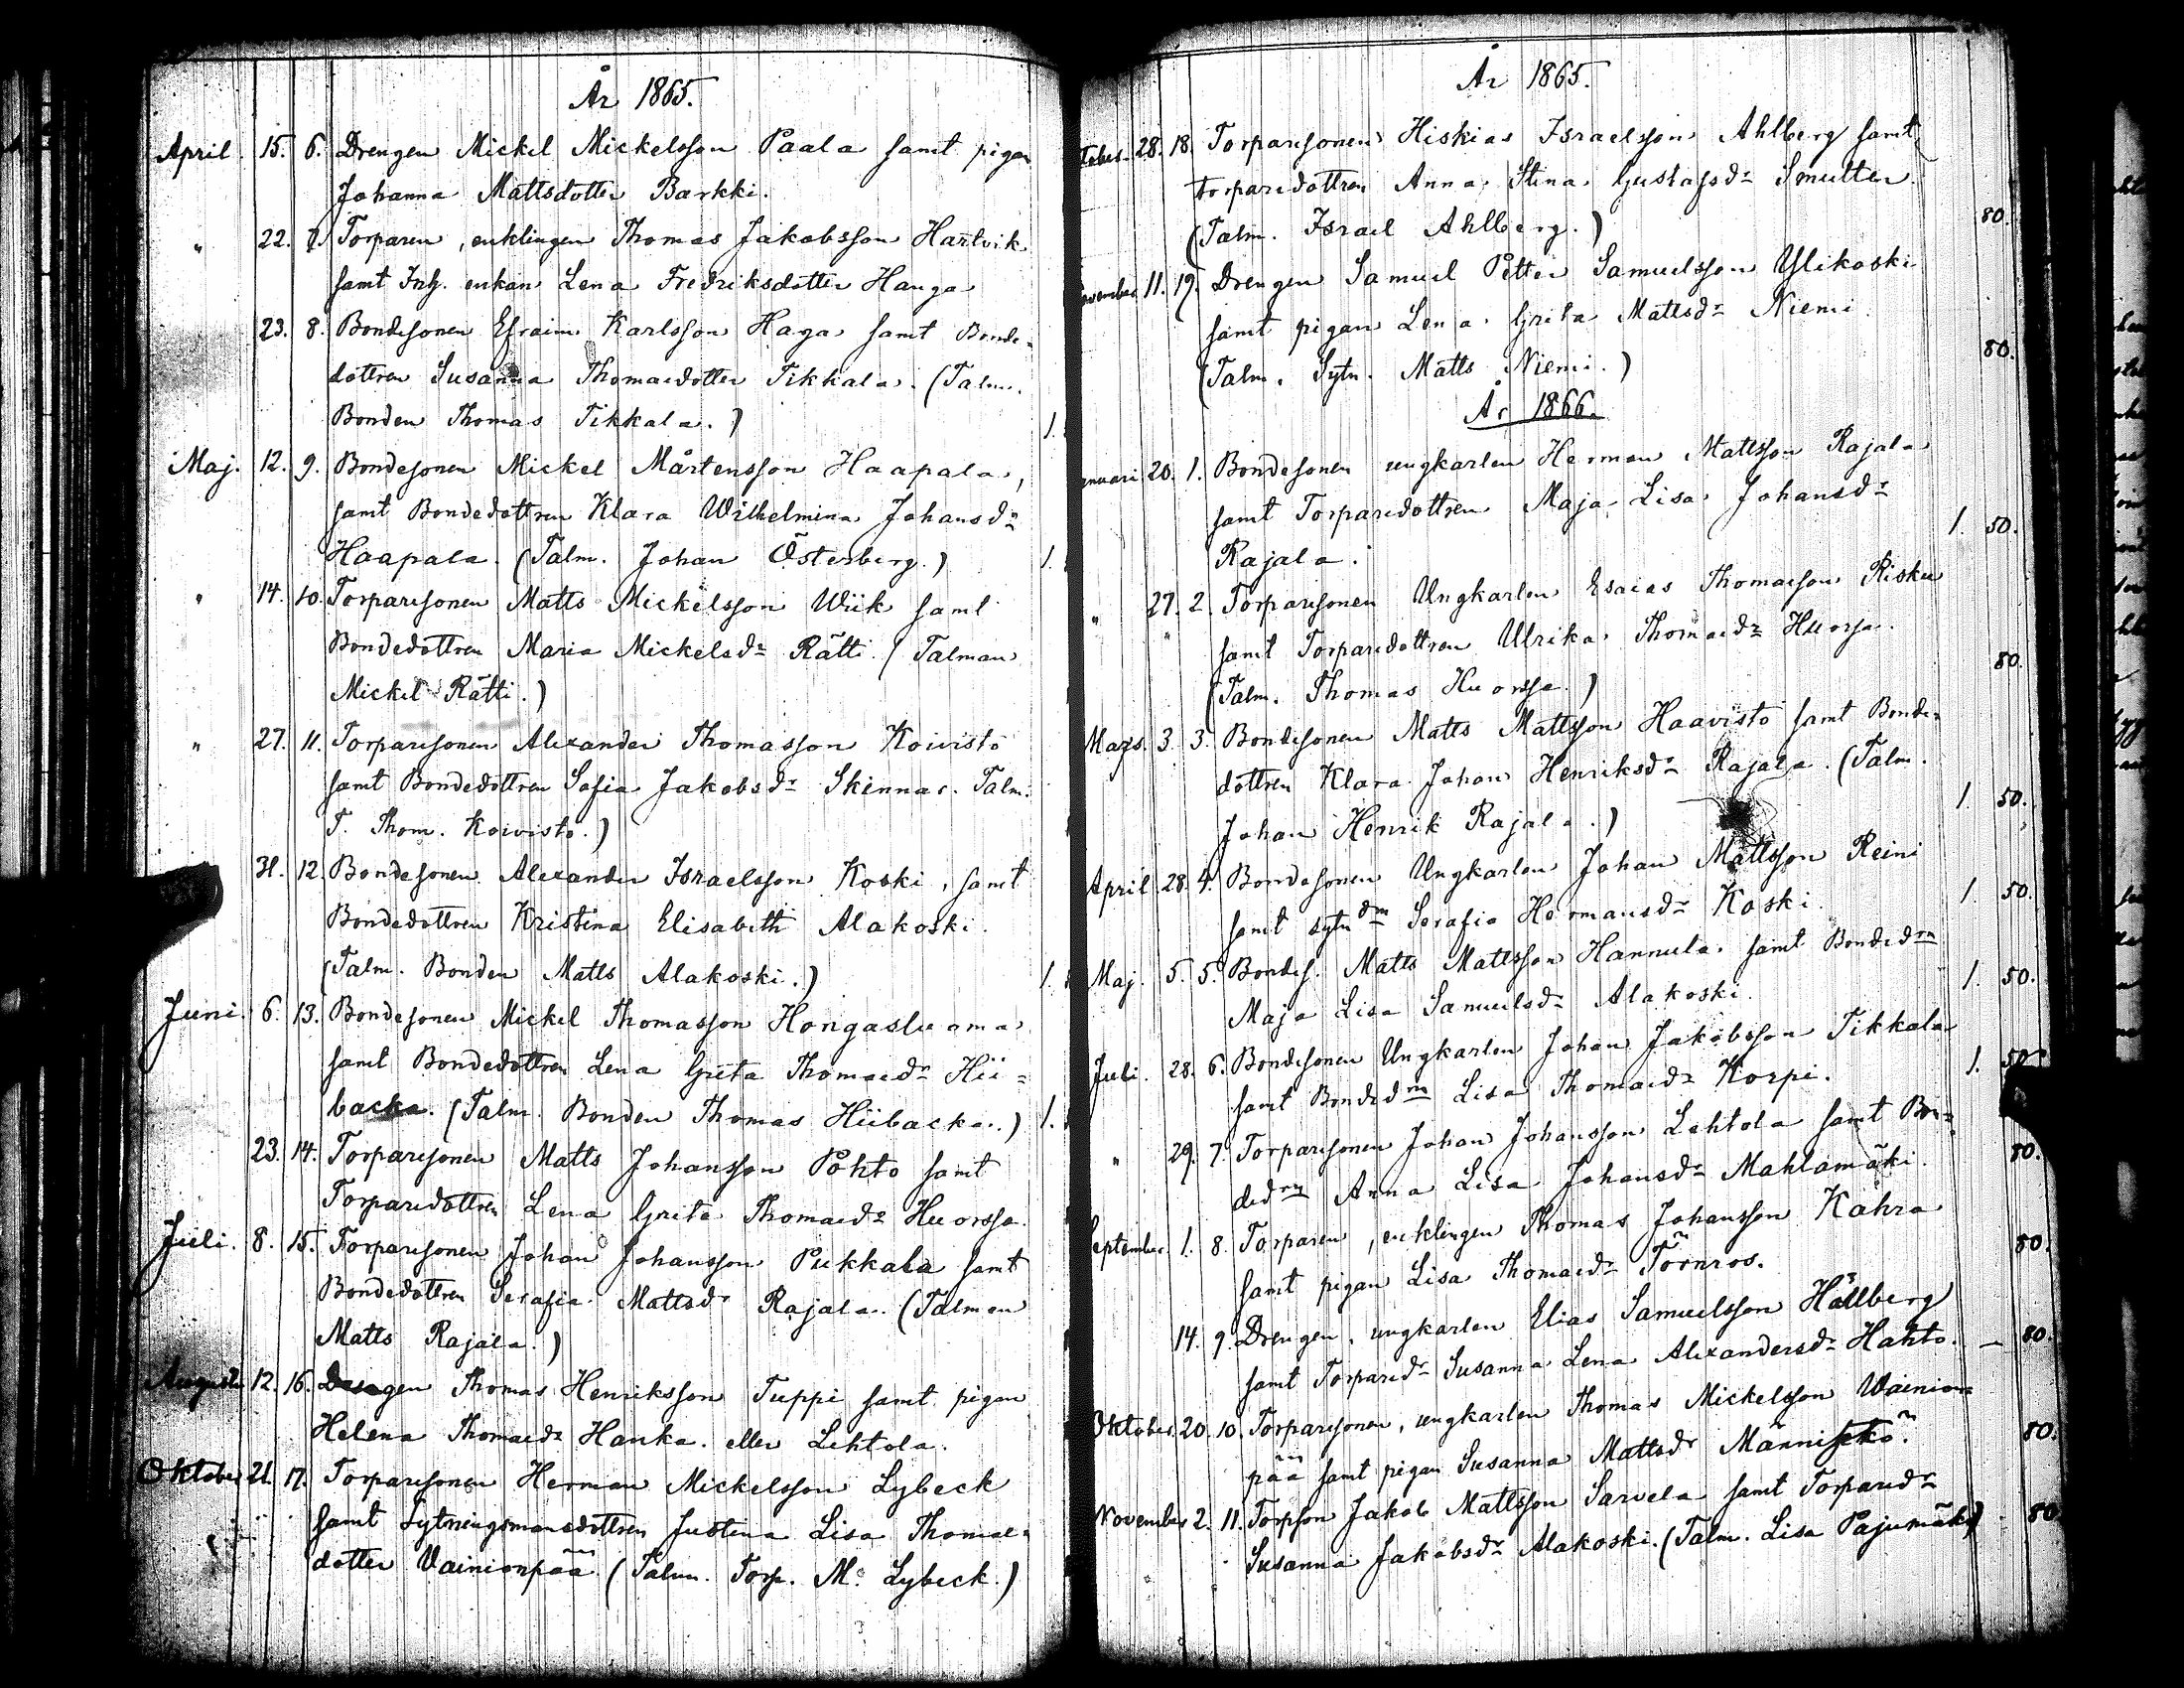 År 1865.
April. 15. 6. Drengen Mickel Mickelsson Paala samt pigan
Johanna Mattsdotter Barkki.
" 22. 7. Torparen, enklingen Thomas Jakobsson Hartvik
samt Inh. enkan Lena Fredriksdotter Hanga
23. 8. Bondesonen Efraim Karlsson Haga samt Bonde=
dottren Susanna Thomasdotter Tikkala. (Talm.
Bonden Thomas Tikkala.) 1.
Maj. 12. 9. Bondesonen Mickel Mårtensson Haapala,
samt Bondedottren Klara Wilhelmina Johansdr
Haapala. (Talm. Johan Österberg.) 1.
" 14. 10. Torparesonen Matts Mickelsson Wiik samt
Bondedottren Maria Mickelsdr Rätti. (Talman
Mickel Rätti.)
" 27. 11. Torparesonen Alexander Thomasson Koivisto
samt Bondedottren Sofia Jakobsdr Skinnar. Talm.
T. Thom. Koivisto.)
31. 12. Bondesonen Alexander Israelsson Koski, samt
Bondedottren Kristina Elisabeth Alakoski.
(Talm. Bonden Matts Alakoski.) 1.
Juni. 6. 13. Bondesonen Mickel Thomasson Hongasluoma
samt Bondedottren Lena Greta Thomasdr Hii=
backa. (Talm. Bonden Thomas Hiibacka.) 1.
23. 14. Torparesonen Matts Johansson Pohto samt
Torparedottren Lena Greta Thomasdr Huorssa.
Juli. 8. 15. Torparesonen Johan Johansson Pukkala samt
Bondedottren Serafia Mattsdr Rajala. (Talman
Matts Rajala.)
Augusti 12. 16. Drengen Thomas Henriksson Tuppi samt pigan
Helena Thomasdr Hanka. eller Lehtola.
Oktober 21. 17. Torparesonen Herman Mickelsson Lybeck
samt Sytningsmansdottren Justina Lisa Thomas=
dotter Vainionpää. (Talm. Torp. M. Lybeck.)
År 1865.
tober. 28. 18. Torparesonen Hiskias Israelsson Ahlberg samt
torparedottren Anna Stina Gustafsdr Smulter.
(Talm. Israel Ahlberg.) 80.
ovember 11. 19. Drengen Samuel Petter Samuelsson Ylikoski
samt pigan Lena Greta Mattsdr Niemi.
(Talm. Sytn. Matts Niemi.) 80.
År 1866.
anuari 20. 1. Bondesonen ungkarlen Herman Mattsson Rajala
samt Torparedottren Maja Lisa Johansdr
Rajala. 1. 50.
" 27. 2. Torparesonen Ungkarlen Esaias Thomasson Risku
samt Torparedottren Ulrika Thomasdr Huorssa.
(Talm. Thomas Huorssa.) 80.
Mars. 3. 3. Bondesonen Matts Mattsson Haavisto samt Bonde=
dottren Klara Johan Henriksdr Rajala. (Talm.
Johan Henrik Rajala.) 1. 50.
April 28. 4. Bondesonen Ungkarlen Johan Mattsson Reini
samt sytn dm Serafia Hermansdr Koski. 1. 50.
Maj. 5. 5. Bondes. Matts Mattsson Hannula samt Bondedrn
Maja Lisa Samuelsdr Alakoski. 1. 50.
Juli. 28. 6. Bondesonen Ungkarlen Johan Jakobsson Tikkala
samt Bondedrn Lisa Thomasdr Korpi. 1. 50
" 29. 7. Torparesonen Johan Johansson Lehtola samt Bon=
dedrn Anna Lisa Johansdr Mahlamäki. 80.
September. 1. 8. Torparen, enklingen Thomas Johansson Kahra
samt pigan Lisa Thomasdr Törnros. 80.
14. 9. Drengen, ungkarlen Elias Samuelsson Hällberg
samt Torparedr Susanna Lena Alexandersdr Hahto. — 80.
Oktober. 20. 10. Torparesonen, ungkarlen Thomas Mickelsson Wainion=
pää samt pigan Susanna Mattsdr Männistkö. 80.
November 2. 11. Torpson Jakob Mattsson Sarvela samt Torparedr
Susanna Jakobsdr Alakoski. (Talm. Lisa Pajumäki) 80